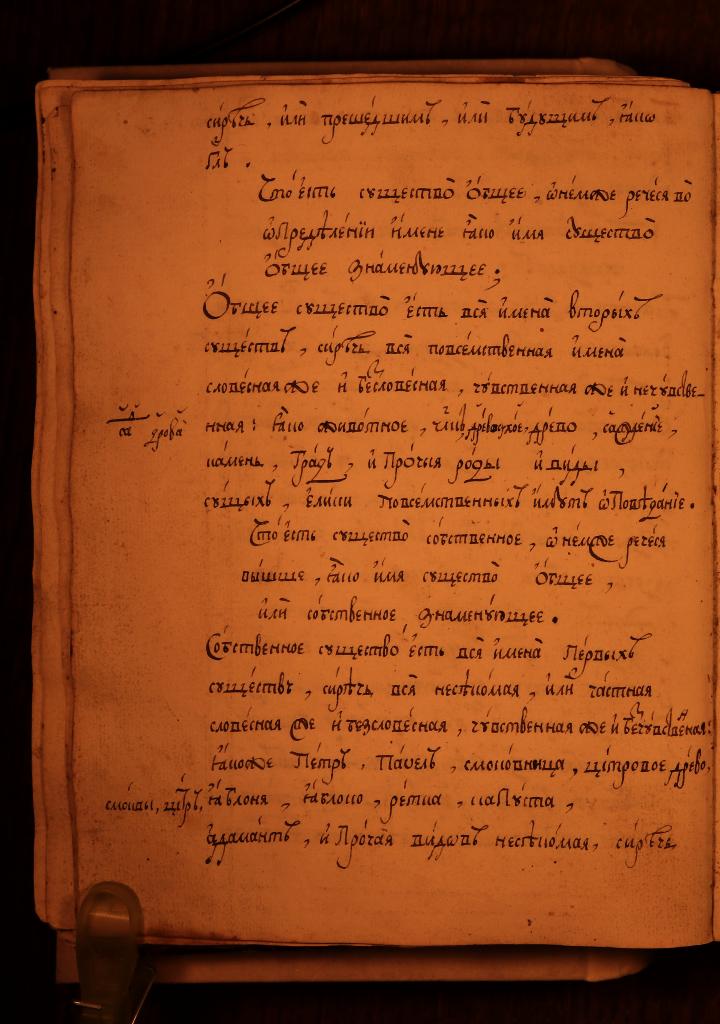 сирѣчь, и҆лѝ прешедшимъ, и҆лѝ будущимъ, ꙗ҆кѡ
гл҃ъ.
Что̀ є҆сть существо̀ О҆бщее, ѡ҆не́мже рече́сѧ во
ѡ҆Предѣле́нїи и҆́мене ꙗ҆́кѡ и҆́мѧ существо̀
О҆́бщее знаменꙋющее;
О҆́бщее существо̀ є҆́сть всѧ̑ и҆мена̀ вторы́хъ
существъ, си́рѣчь всѧ̑ повсемственнаѧ и҆мена̀
слове́снаѧ же и҆ бесловеснаѧ, чꙋвственнаѧ же и҆ нечꙋвстве-
ннаѧ: ꙗ҆́кѡ живо́тное, дре́во, сажде́нїе,
ка́мень, Гра́дъ, и҆ Про́чыѧ ро́ды и҆ ви́ды,
су́щыхъ, є҆ли́ки повсе́мственныхъ и҆́мꙋтъ ѡ҆Повѣда́нїе.
Что̀ є҆́сть существо̀ со́бственное, ѡ҆ не́мже рече́сѧ
вы́шше, ꙗ҆́кѡ и҆́мѧ существо̀ О҆́бщее,
и҆лѝ со́бственное знаменꙋ́ющее.
Со́бственное существо̀ є҆́сть всѧ̑ и҆мена̀ Пе́рвыхъ
суще́ствъ, си́рѣчь всѧ̑ несѣко́маѧ, и҆лѝ ча́стнаѧ
слове́снаѧ же и҆ безслове́снаѧ, чꙋ́вственнаѧ же и҆ безчꙋ́вственнаѧ:
ꙗ҆́коже Пе́тръ, Па́велъ, смоко́вница, ци́тровое дре́во,
смо́квы, ци́тръ, ꙗ҆́блонѧ, ꙗ҆́блоко, ре́тка, ка́Пꙋста,
а҆дама́нтъ, и҆ Про́чаѧ ви́дѡвъ несѣко́маѧ, си́рѣчь